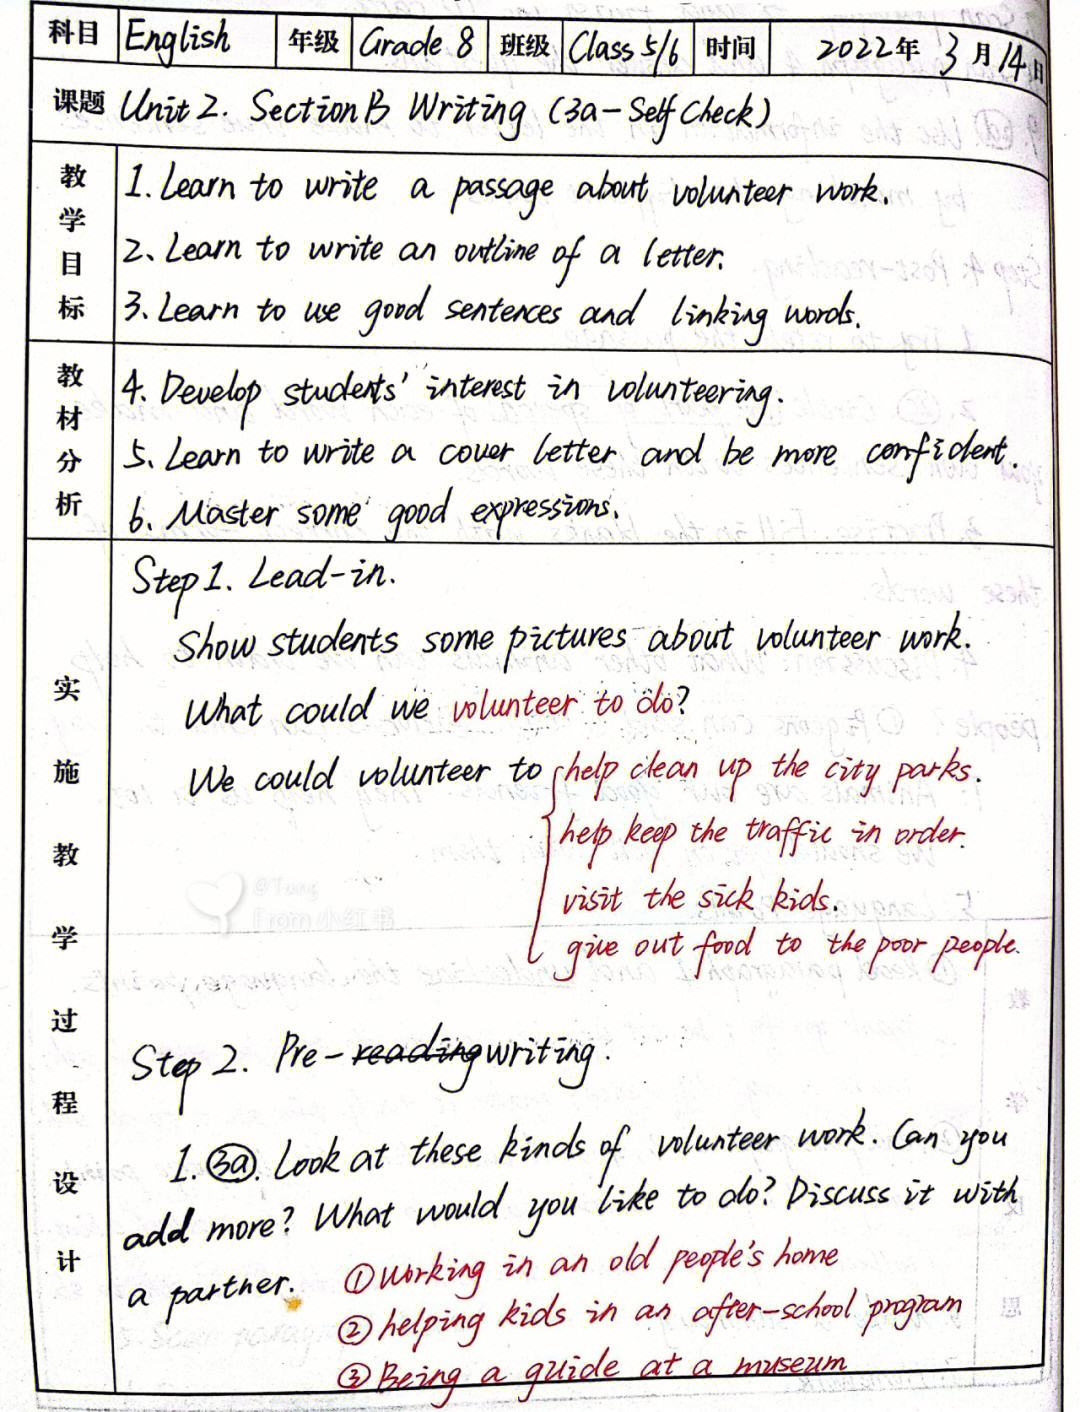 科目 English 年级 Grade 8 班级 Class 5/6 时间 2022年 3月14日
课题 Unit 2. Section B Writing (3a-Self Check)
教学目标
1. Learn to write a passage about volunteer work.
2. Learn to write an outline of a letter.
3. Learn to use good sentences and linking words.
教材分析
4. Develop students' interest in volunteering.
5. Learn to write a cover letter and be more confident.
6. Master some good expressions.
实施教学过程设计
Step 1. Lead-in.
Show students some pictures about volunteer work.
What could we volunteer to do?
We could volunteer to help clean up the city parks.
help keep the traffic in order.
visit the sick kids.
give out food to the poor people.
@Tung
From 小红书
Step 2. Pre-reading writing.
1. 3a. Look at these kinds of volunteer work. Can you
add more? What would you like to do? Discuss it with
a partner. ①Working in an old people's home
②helping kids in an after-school program
③Being a guide at a museum